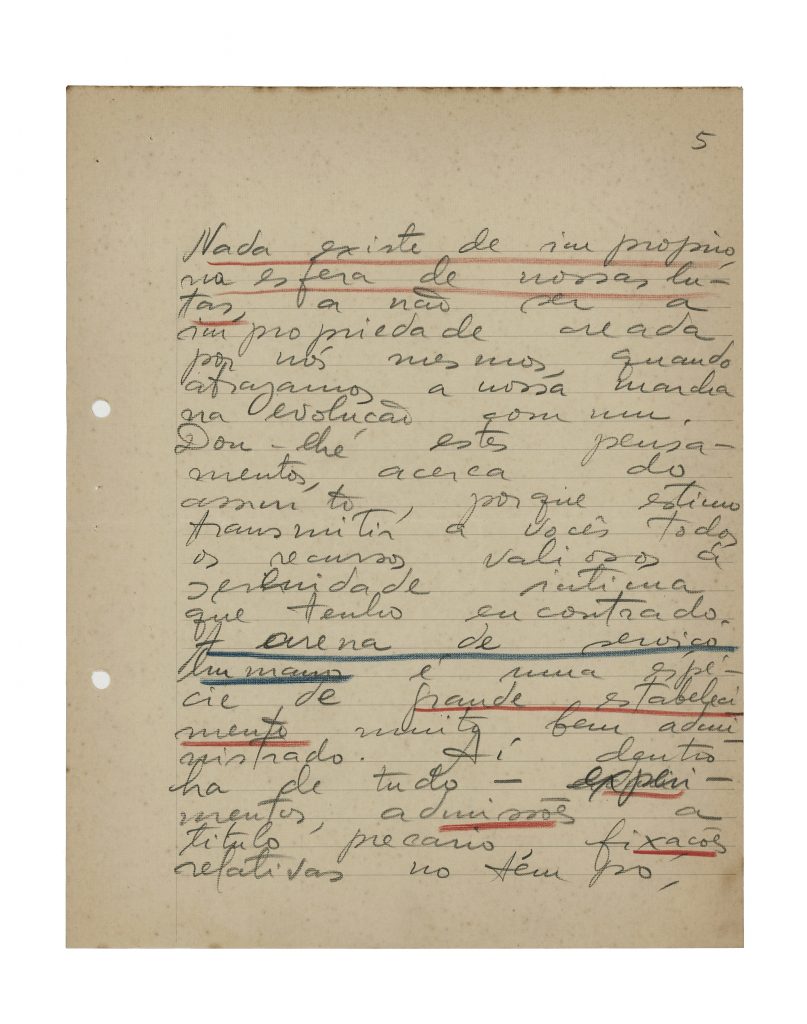 5
Nada existe de improprio,
na esfera de nossas lu-
tas, a não ser a
impropriedade creada
por nós mesmos, quando
atrazamos a nossa marcha
na evolução comum.
Dou-lhe estes pensa-
mentos, acerca do
assunto, porque estimo
transmitir a vocês todos
os recursos valiosos á
serenidade intima
que tenho encontrado.
A arena de serviço
humano é uma espé-
cie de grande estabeleci
mento muito bem admi
nistrado. Aí dentro
ha de tudo - experi-
mentos, admissões a
titulo precario, fixações
relativas no tempo,